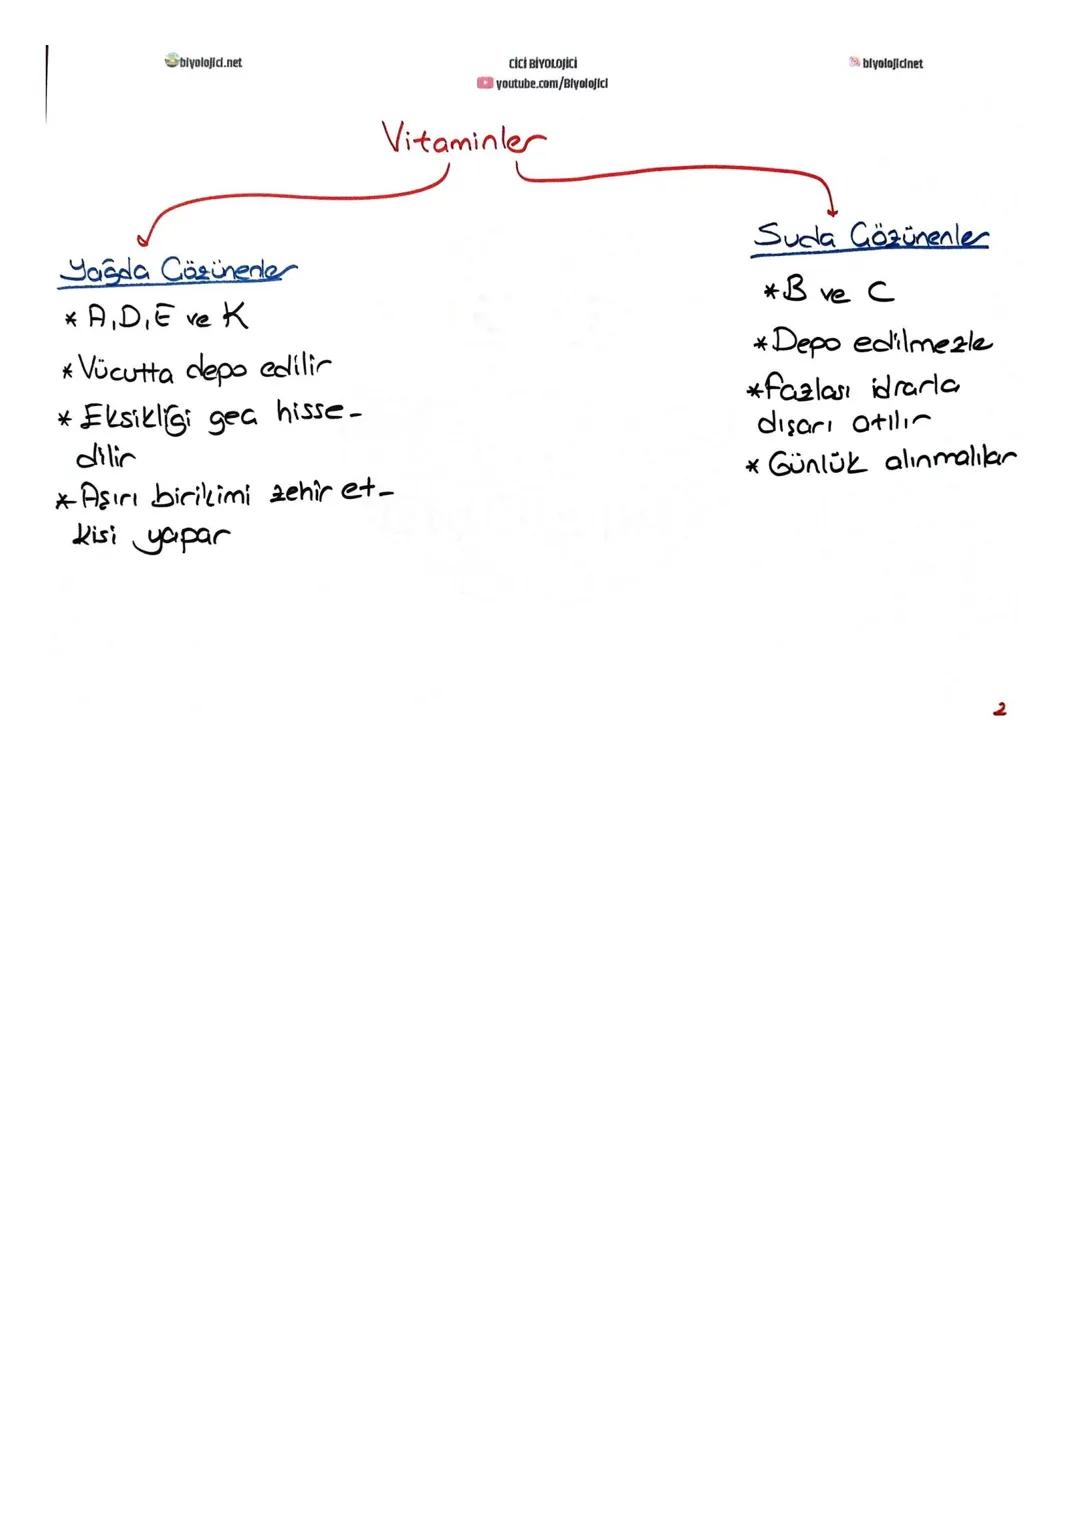 biyolojici.net
CİCİ BİYOLOJİCİ
youtube.com/Biyolojici
biyolojicinet
Vitaminler
Yağda Çözünenler
* A,D,E ve K
* Vücutta depo edilir
* Eksikliği geç hisse-
dilir
* Aşırı birikimi zehir et-
kisi yapar
Suda Çözünenler
* B ve C
* Depo edilmezle
* fazlası idrarla
dışarı atılır
* Günlük alınmalılar
2